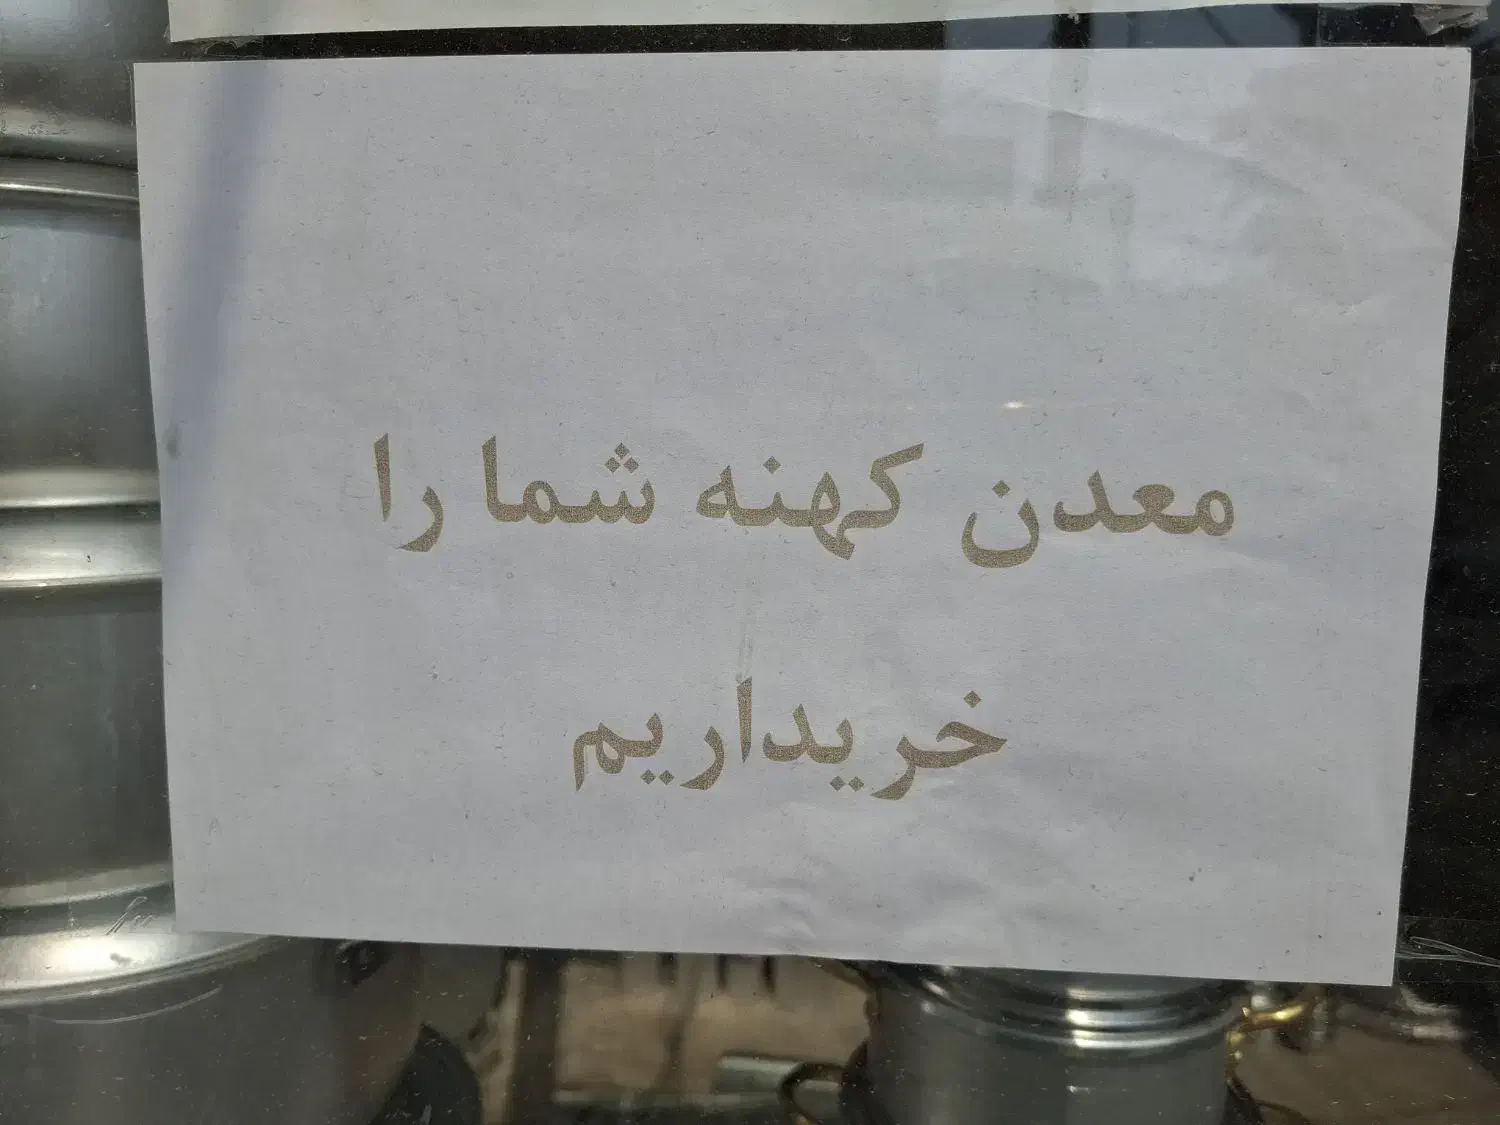 معدن کهنه شما را
خریداریم